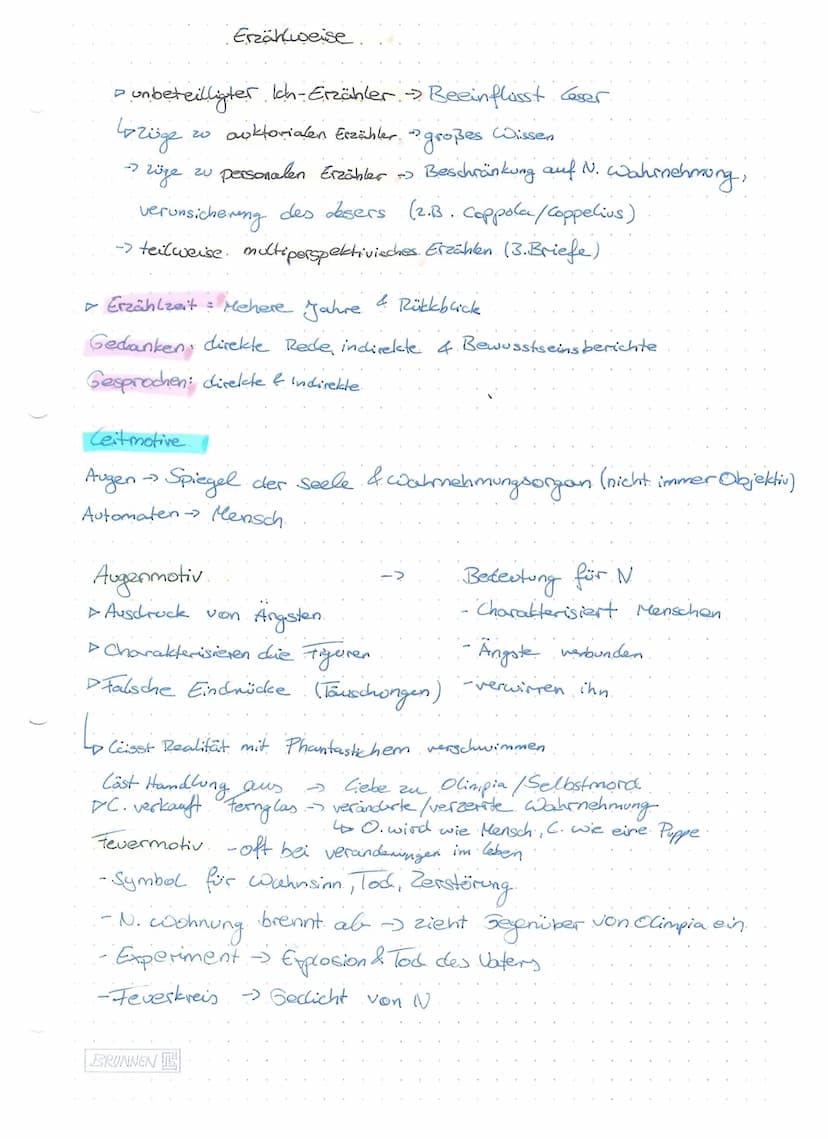 Erzählweise
▷ unbeteilligter Ich-Erzähler → Beeinflusst Leser
↳ Züge zu auktorialen Erzähler → großes Wissen
→ züge zu personalen Erzähler → Beschränkung auf N. Wahrnehmung,
verunsicherung des Lesers (z.B. Coppola/Coppelius)
→ teilweise multiperspektivisches Erzählen (3.Briefe)
▷ Erzählzeit: Mehere Jahre & Rückblick
Gedanken: direkte Rede, indirekte & Bewusstseinsberichte
Gesprochen: direkte & Indirekte
Leitmotive
Augen → Spiegel der Seele & Wahrnehmungsorgan (nicht immer Objektiv)
Automaten → Mensch
Augenmotiv → Bedeutung für N
▷ Ausdruck von Ängsten - Charakterisiert Menschen
▷ Charakterisieren die Figuren - Ängste verbunden
▷ Falsche Eindrücke (Täuschungen) - verwirren ihn
↳ Lässt Realität mit Phantastichem verschwimmen
Löst Handlung aus → Liebe zu Olimpia/Selbstmord
▷ C. verkauft Fernglas → veränderte/verzerrte Wahrnehmung
↳ O. wird wie Mensch, C. wie eine Puppe
Feuermotiv - oft bei veränderungen im Leben
- Symbol für Wahnsinn, Tod, Zerstörung
- N. Wohnung brennt ab → zieht gegenüber von Olimpia ein
- Experiment → Explosion & Tod des Vaters
- Feuerkreis → Gedicht von N
BRUNNEN